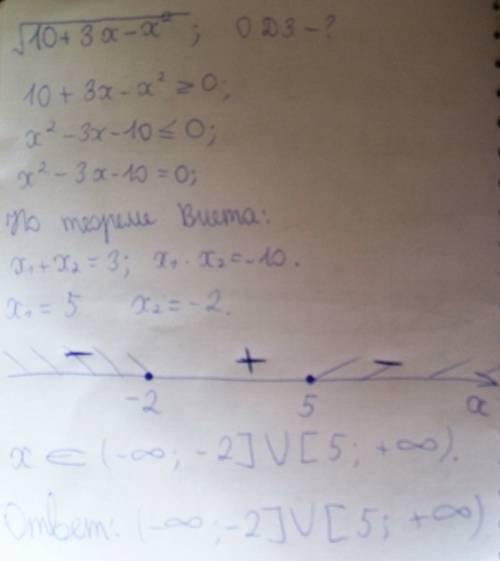 √10+3x-x²; ОДЗ-?
10+3x-x²≥0;
x²-3x-10≤0;
x²-3x-10=0;
По теореме Виета:
x₁+x₂=3; x₁·x₂=-10.
x₁=5 x₂=-2.
- + -
-2 5 x
x∈(-∞;-2]∪[5;+∞).
Ответ: (-∞;-2]∪[5;+∞)